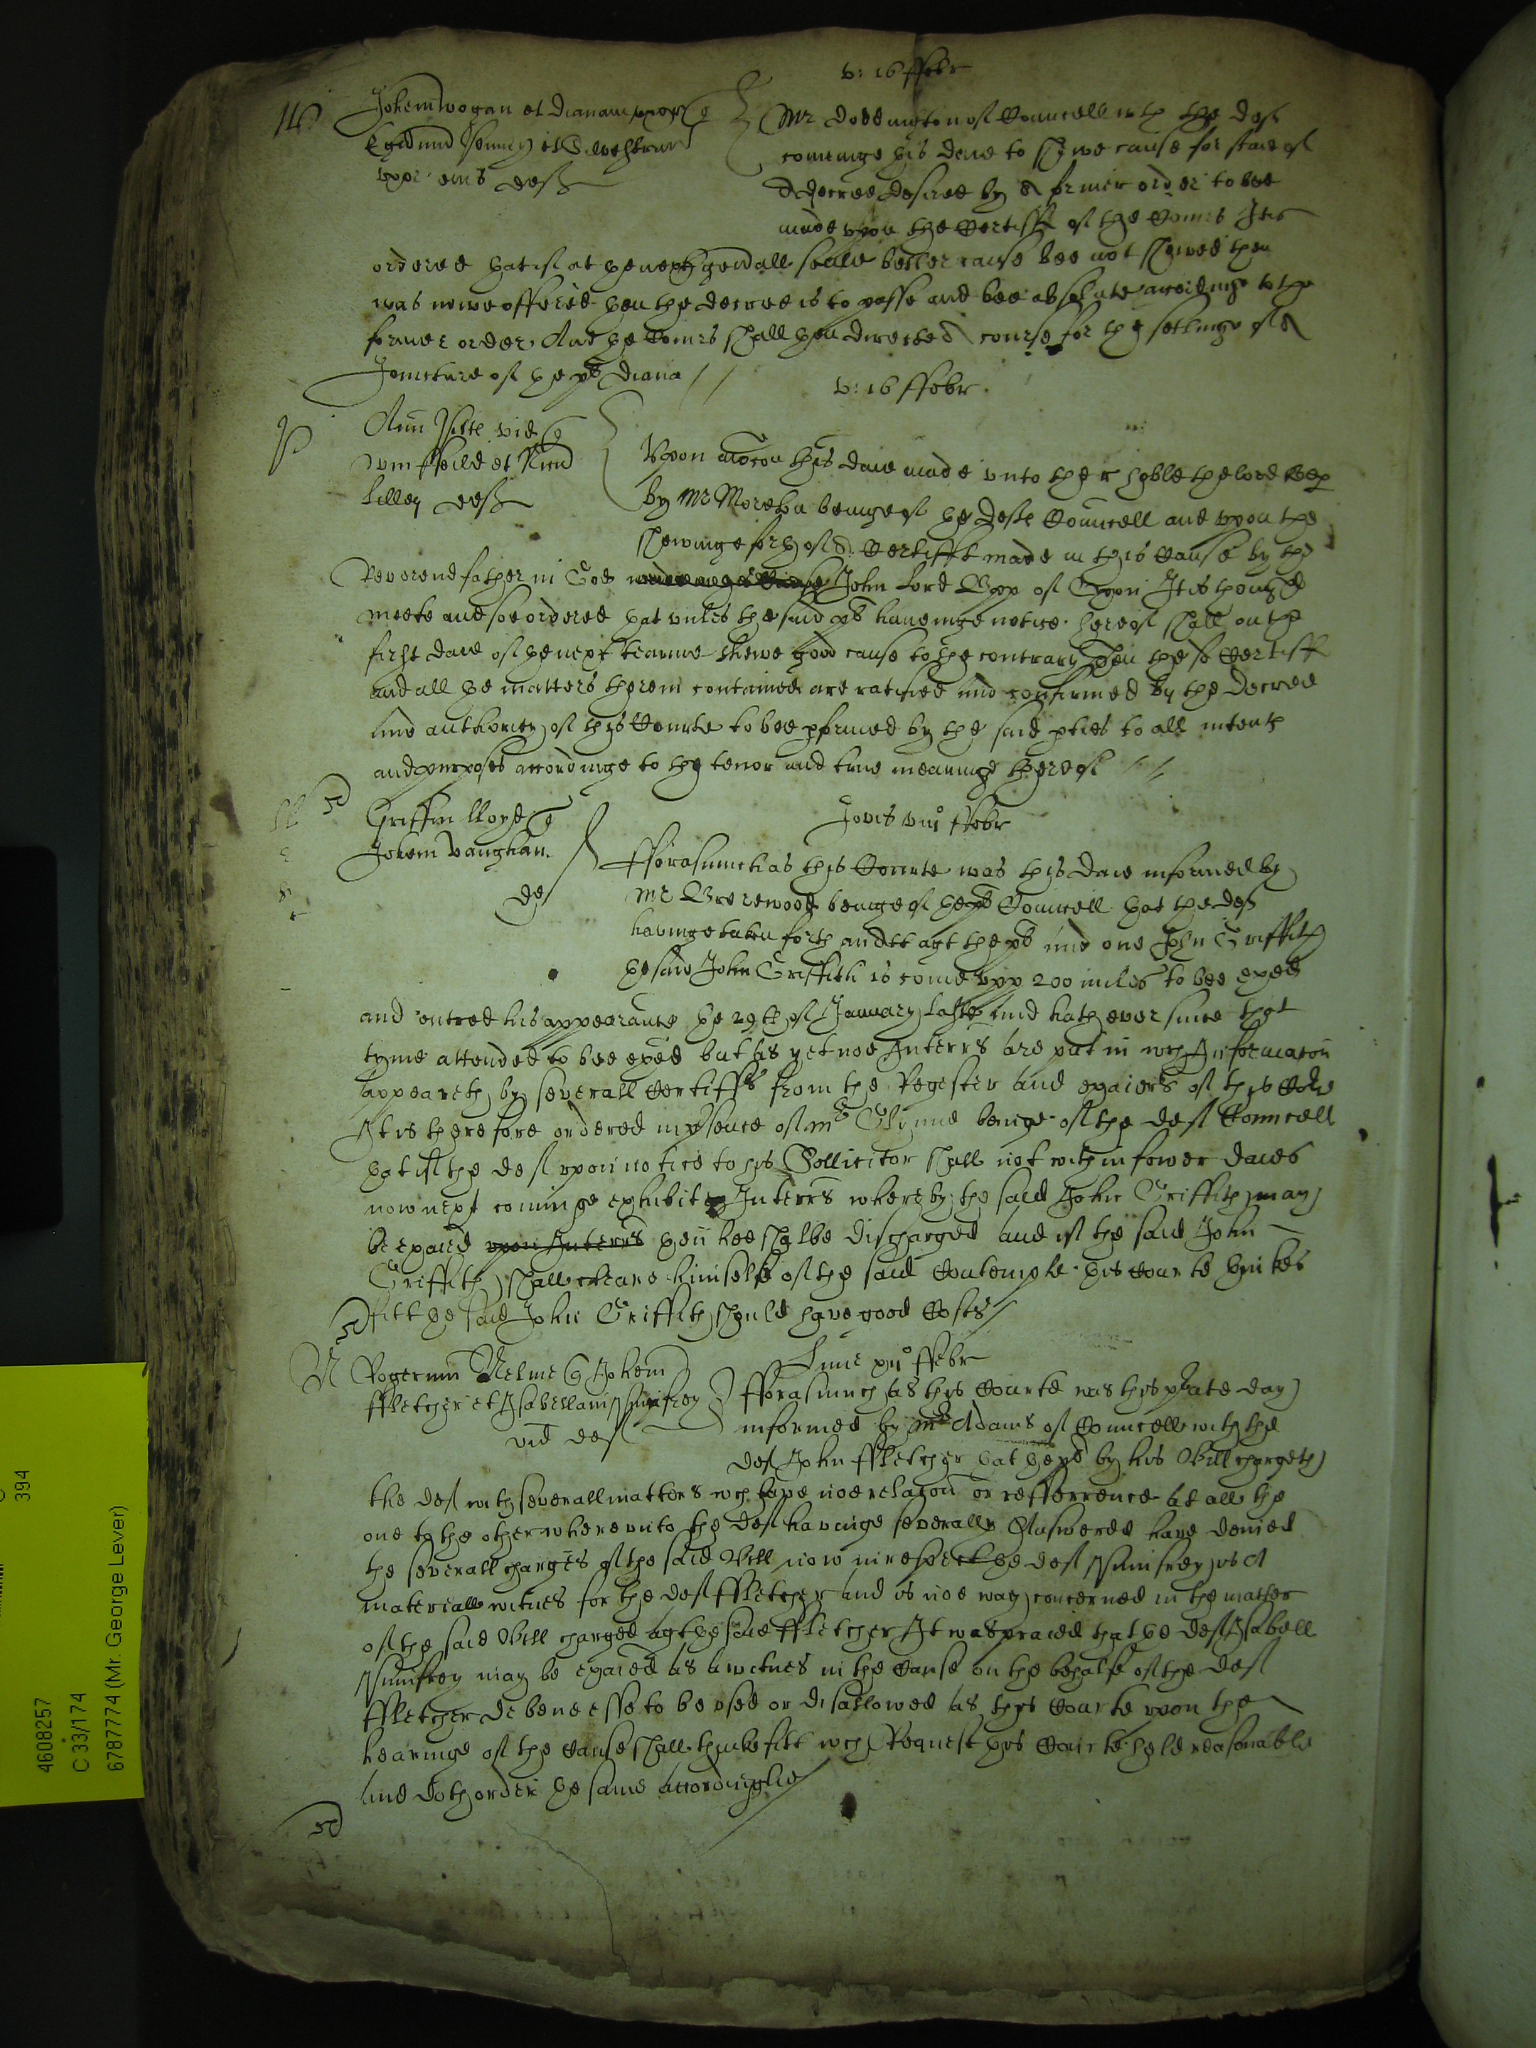 v: 16 ffebr
Johem Wogan et Dianam uxor
Egidium et Silvestram
uxor eius deft
Mr Doddington of Councell wth the deft
cominge this daie to shewe cause for staie of
a decree desired by a former order to bee
made upon the Certifft of the Comrs It is
ordered that if at the next genall seale better cause bee not shewed then
was nowe offered then the decree is to passe and bee absolute accordinge to the
former order And the Comrs shall then direct a course for the setlinge of a
Joincture of the plt Diana //
v: 16 ffebr
Ann vid
Wm ffeild et Ricd
Lilley deft
Upon mocon this daie made unto the r hoble the lord Keep
by Mr Moreton beinge of the defte Councell and upon the
shewinge forth of a Certifft made in this Cause by the
Reverend father in God John Lord Bpp of Oxon It is thought
meete and soe ordered that unles the said plt haveinge notice hereof shall on the
first daie of the next tearme shewe good cause to the contrary Then the sd Certiff
and all the matters therein contained are ratified and confirmed by the Decree
and authority of this Courte to bee pformed by the said pties to all intents
and purposes accordinge to the tenor and true meaninge thereof //
Griffin lloyd
Johem Vaughan
def
Jovis viii ffebr
fforasmuch as this Courte was this daie informed by
Mr Brerewood beinge of the plts Councell that the deft
havinge taken forth an Att agt the plt and one John Griffith
the said John Griffith is come upp 200 miles to bee exed
and entred his appearance the 29th of January laste and hath ever since that
tyme attended to bee exed but as yet noe Interrs are put in wch Informacon
appeareth by severall Certiffts from the Register and exaiers of this Cote
It is therefore ordered in psence of Mr Glynne beinge of the def Councell
that if the def upon notice to his Sollicitor shall not within fower daies
now next cominge exhibite Interrs whereby the said John Griffith may
be exaied upon Interrs then hee shalbe discharged and if the said John
Griffith shall cleare himselfe of the said Contempte this Courte thinkes
fitt the said John Griffith should have good Costs/
Rogerum Nelme Johem
ffletcher et Isabellam Humfrey
vid def
Lune xii ffebr
fforasmuch as this Courte was this psente day
informed by Mr Adams of Councell with the
def John ffletcher that the plt by his Bill chargeth
the def with severall matters wch have noe relacon or refference at all the
one to the other whereunto the def havinge severally Answered have denied
the severall charges of the said Bill now in respect the def Humfrey is a
materiall witnes for the def ffletcher and is noe way concerned in the matter
of the said Bill charged agt the said ffletcher It was praied that the def Isabell
Humfrey may be exaied as a witnes in the Cause on the behalfe of the def
ffletcher de bene esse to be used or disallowed as this Courte upon the
hearinge of the Cause shall thinke fitt wch Request this Courte held reasonable
and doth order the same accordinglie
394
4608257
C 33/174
6787774 (Mr. George Lever)